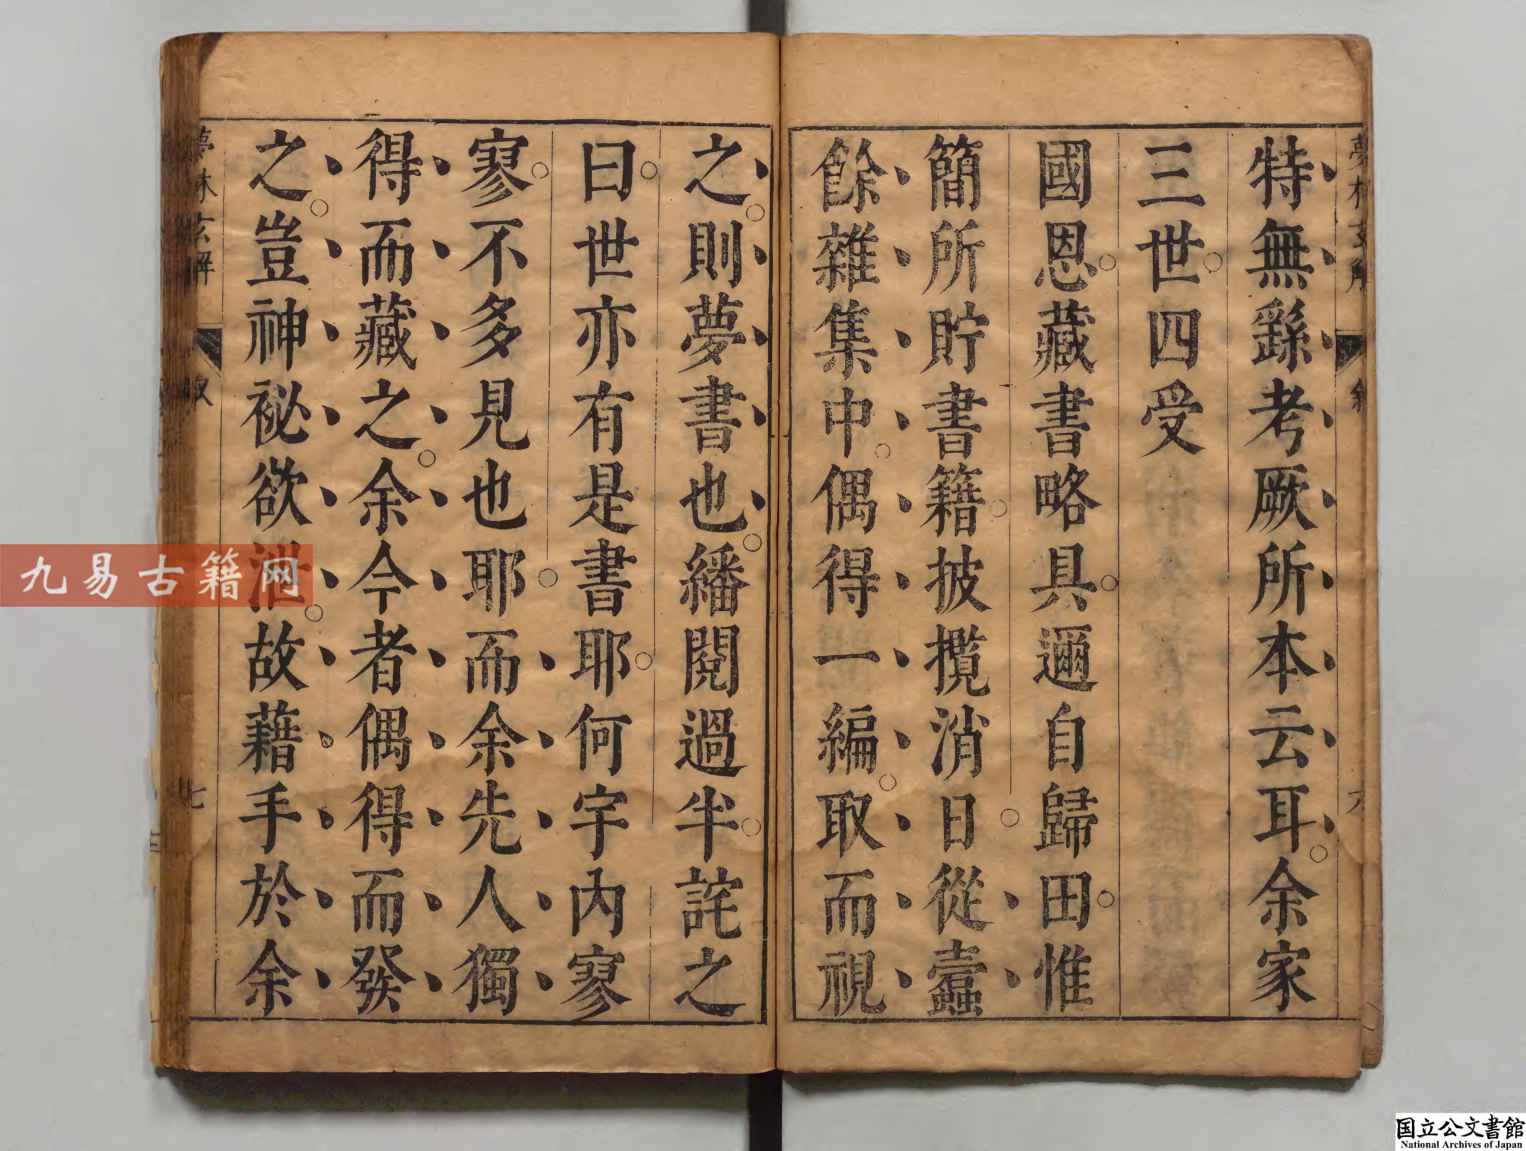 特無繇考厥所本云耳余家
三世四受
國恩藏書略具邇自歸田惟
簡所貯書籍披攬消日從蠹
餘雜集中偶得一編取而視
之則夢書也繙閱過半詫之
曰世亦有是書耶何宇內寥
寥不多見也耶而余先人獨
得而藏之余今者偶得而發
之豈神祕欲泄故藉手於余
夢林玄解
敘
六
七
九易古籍网
国立公文書館
National Archives of Japan